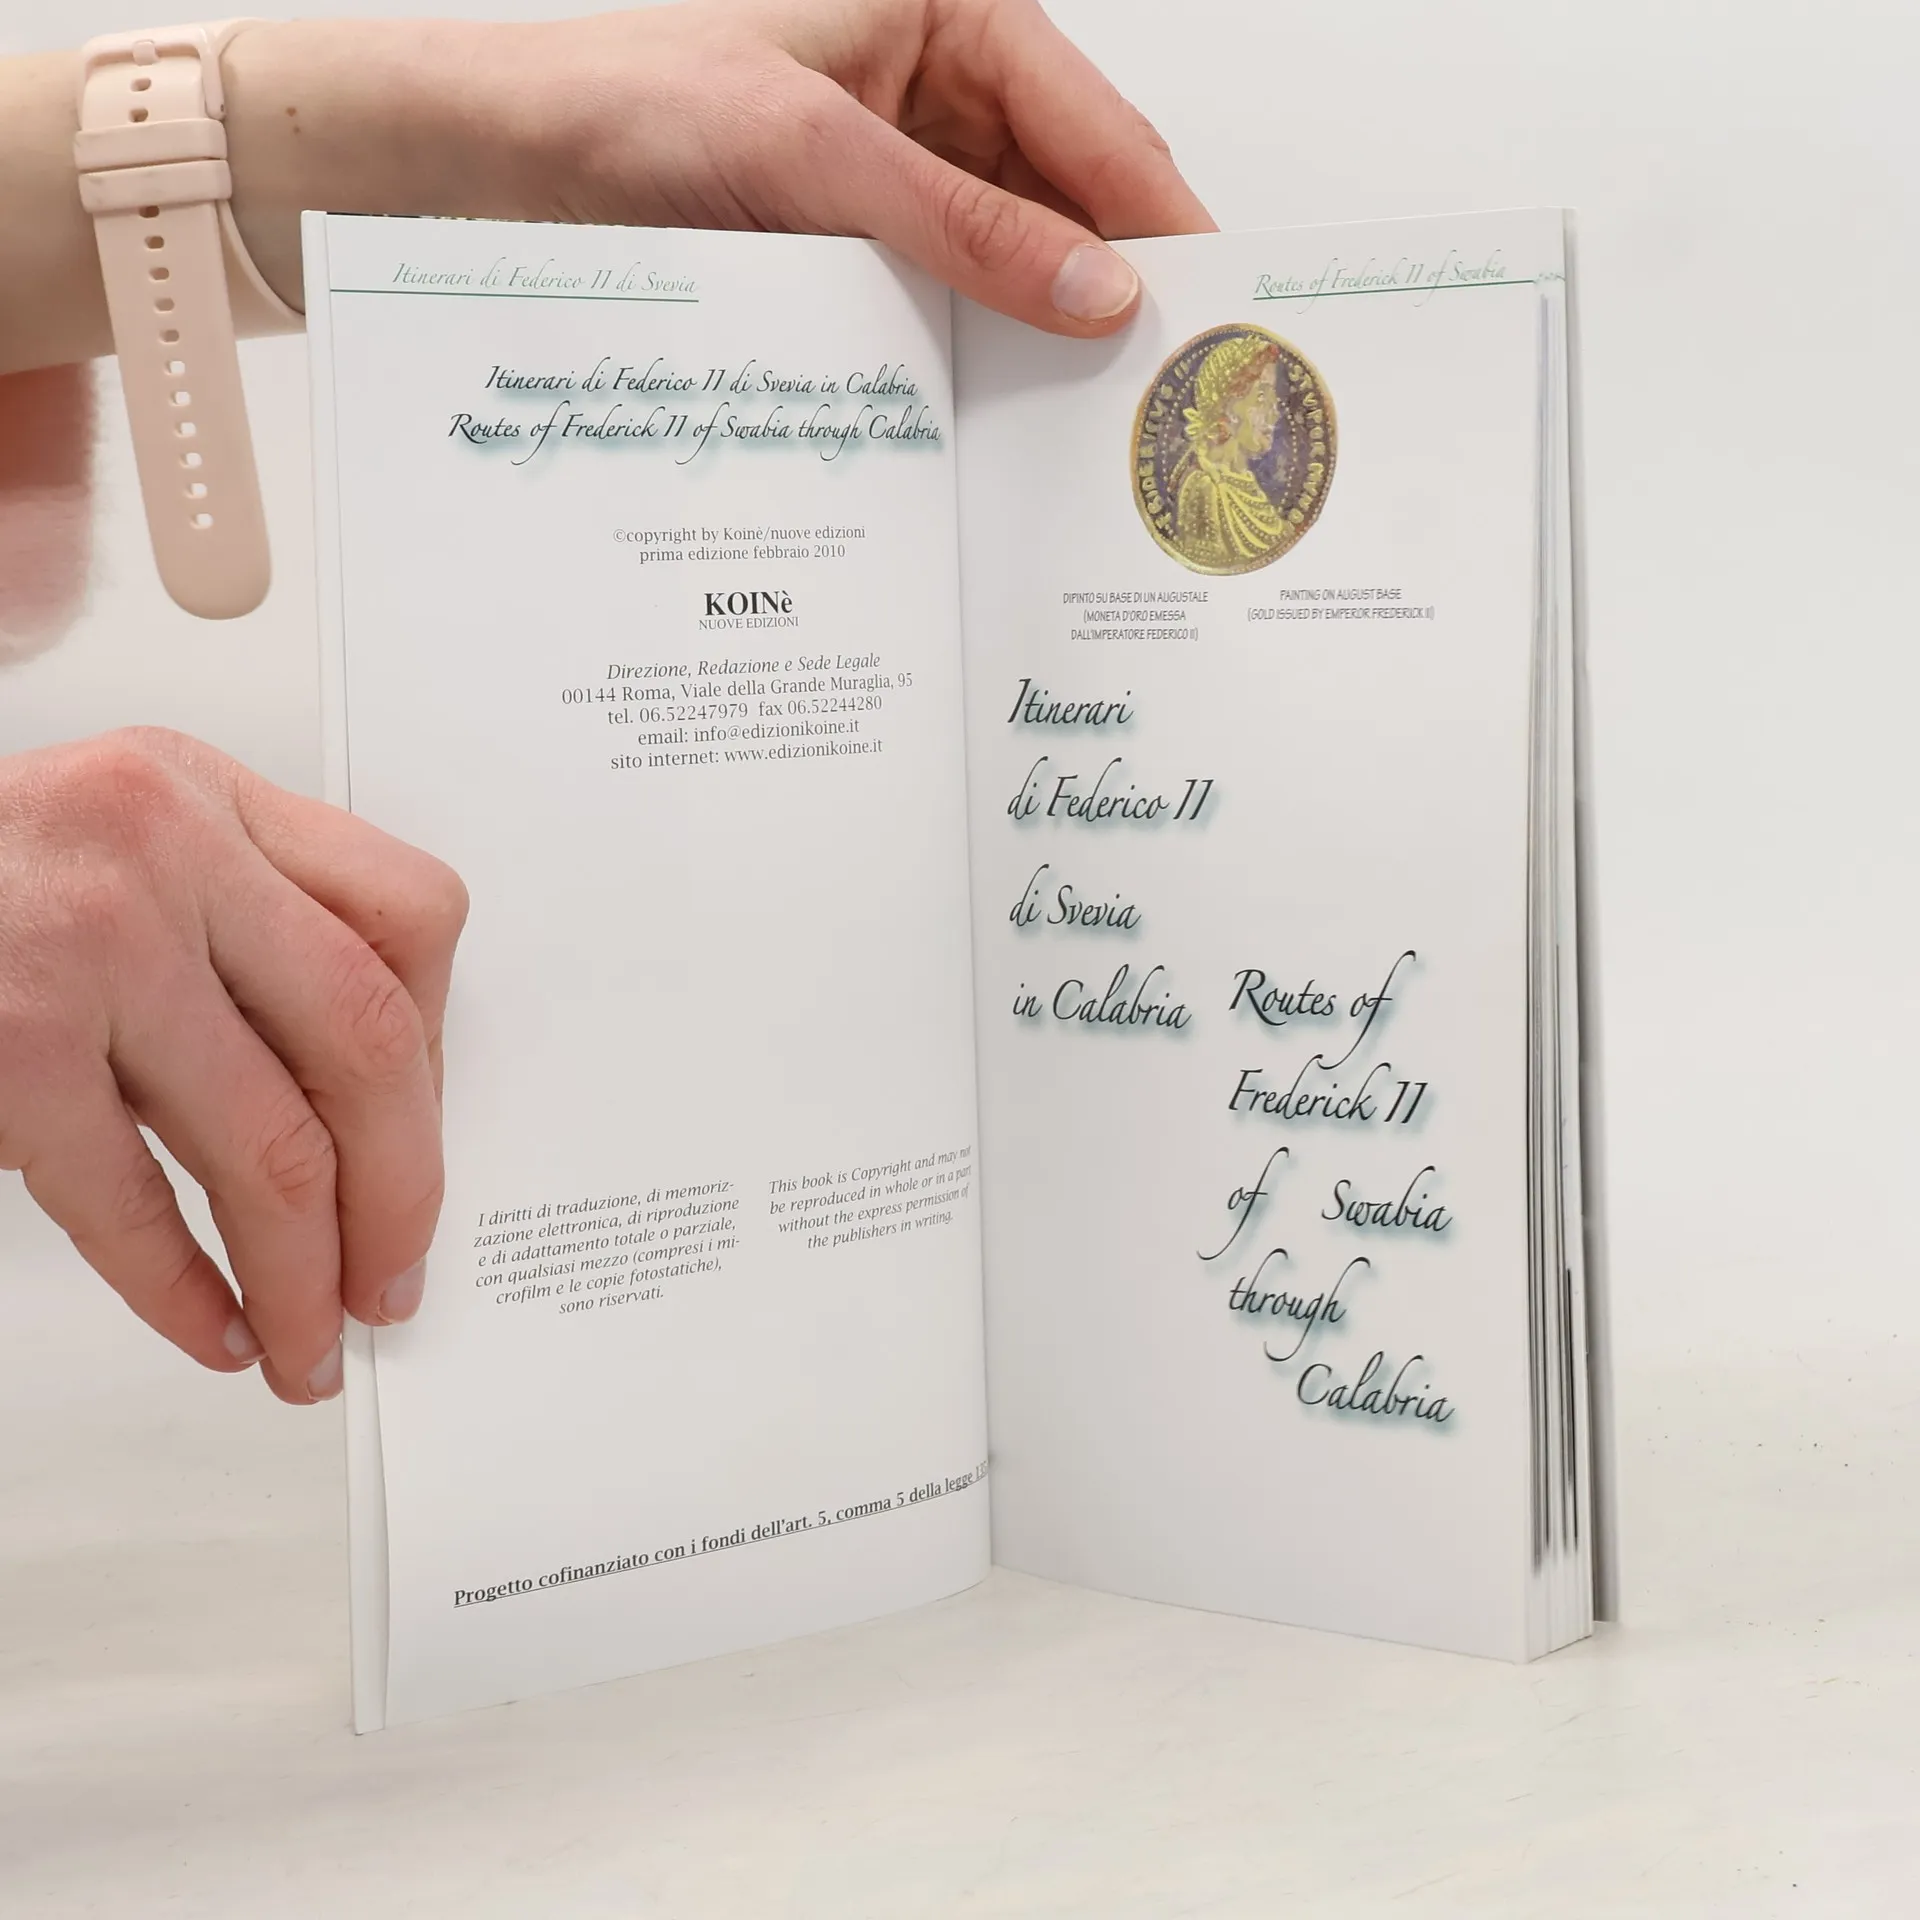 Itinerari di Federico II di Svevia
Itinerari di Federico II di Svevia in Calabria
Routes of Frederick II of Swabia through Calabria
©copyright by Koinè/nuove edizioni
prima edizione febbraio 2010
KOINè
NUOVE EDIZIONI
Direzione, Redazione e Sede Legale
00144 Roma, Viale della Grande Muraglia, 95
tel. 06.52247979 fax 06.52244280
email: info@edizionikoine.it
sito internet: www.edizionikoine.it
I diritti di traduzione, di memoriz-
zazione elettronica, di riproduzione
e di adattamento totale o parziale,
con qualsiasi mezzo (compresi i mi-
crofilm e le copie fotostatiche),
sono riservati.
This book is Copyright and may not
be reproduced in whole or in a part
without the express permission of
the publishers in writing.
Progetto cofinanziato con i fondi dell'art. 5, comma 5 della legge
Routes of Frederick II of Swabia
FRIDERICVS II STVPOR MVNDI
DIPINTO SU BASE DI UN AUGUSTALE
(MONETA D'ORO EMESSA
DALL'IMPERATORE FEDERICO II)
PAINTING ON AUGUST BASE
(GOLD ISSUED BY EMPEROR FREDERICK II)
Itinerari
di Federico II
di Svevia
in Calabria
Routes of
Frederick II
of Swabia
through
Calabria